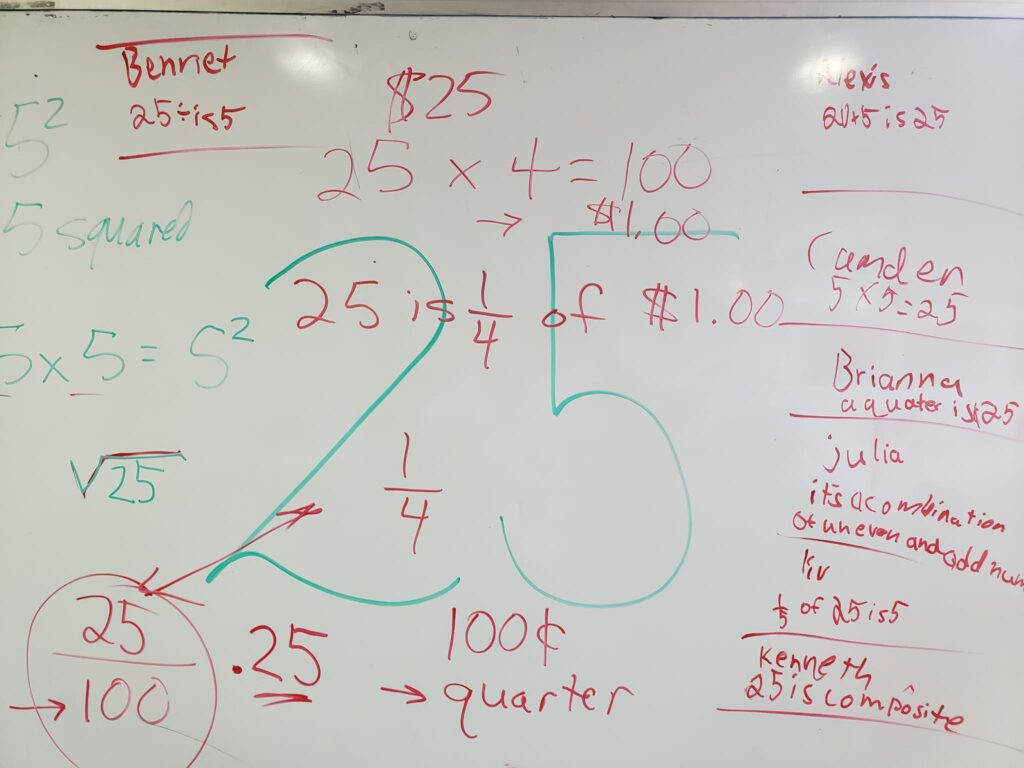 Bennet
25÷is5
5²
5 squared
5x5=5²
√25
$25
25 x 4=100
→ $1.00
25 is 1/4 of $1.00
25
1/4
25/100
→
.25
100¢
→ quarter
Alexis
20+5 is 25
Camden
5x5=25
Brianna
a quater is 25
julia
it's a combination
of uneven and odd num
liv
1/5 of 25 is 5
Kenneth
25 is composite